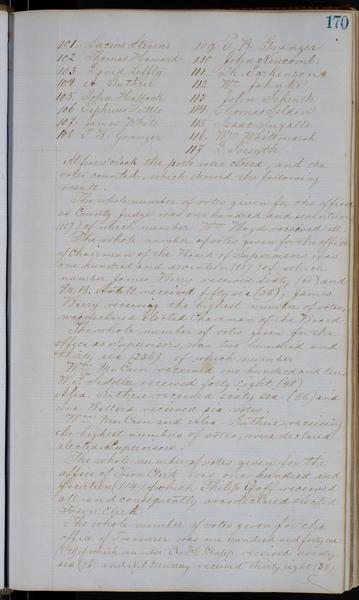 170
101. Lucius Stevens 109 P. W. Granger
102. Thomas Howard 110 John Newcomb
103. David 111. Th. Parkinson
104. A Guthrie 112 Wm Jahnke
105. John Hallock 113 John
106. Tuttle 114 Thomas Seldon
107. James White 115 Isaac Ingalls
108 P. W. Granger 116. Wm Whitmarsh
117 Forsyth
At five o'clock the polls were closed, and the
votes counted, which showed the following
result.
The whole number of votes given for the office
as County Judge was one hundred and seventeen
(117) of which number Wm Boyd received all.
The whole number of votes given for the office
of Chairman of the Board of Supervisors was
one hundred and seventeen (117) of which
number James Berry received sixty (60) and
received fifty six (56), James
Berry receiving the highest number of votes,
was declared elected Chairman of the Board
The whole number of votes given for the
office as Supervisors, was two hundred and
thirty six (236) of which number
Wm McCain received one hundred and ten,
W. T. Saddler received forty Eight (48)
Alex. Guthrie received sixty six (66) and
Ballard received six votes.
Wm McCain and Alex Guthrie receiving
the highest numbers of votes, were declared
elected Supervisors.
The whole number of votes given for the
office of Town Clerk was one hundred and
fourteen (114) of which Philip received
all and consequently was declared elected
Town Clerk.
The whole number of votes given for the
office of Treasurer was one hundred and forty one
(141) of which number A. H. Clapp received ninety
six (96) and Murray received thirty eight (38)